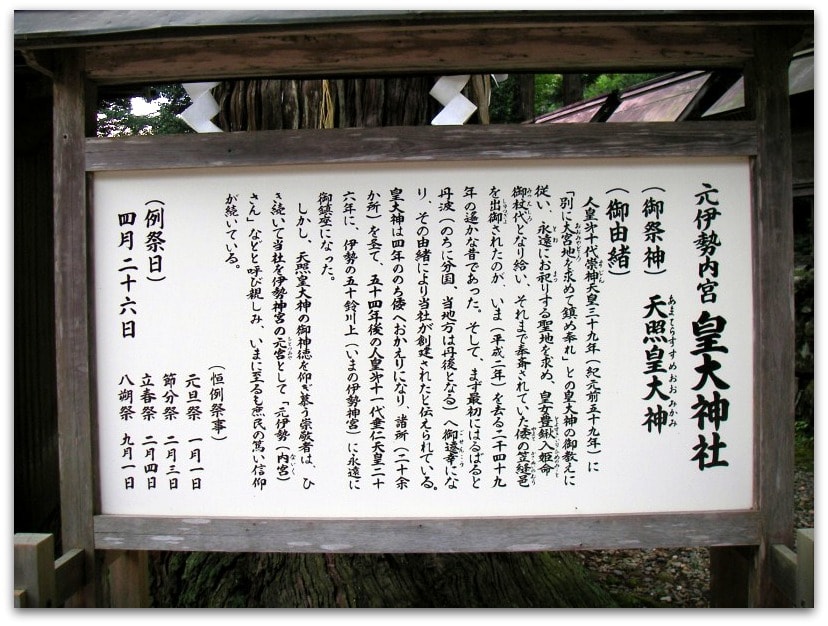 元伊勢内宮 皇大神社
(御祭神) 天照皇大神
あまてらすすめおおみかみ
(御由緒)
人皇第十代崇神天皇三十九年(紀元前五十九年)に
「別に大宮地を求めて鎮め奉れ」との皇大神の御教えに
従い、永遠にお祀りする聖地を求め、皇女豊鍬入姫命
御杖代となり給い、それまで奉斎されていた倭の笠縫邑
を出御されたのが、いま(平成二年)を去る二千四十九
年の遥かな昔であった。そして、まず最初にはるばると
丹波(のちに分国、当地方は丹後となる)へ御遠幸にな
り、その由緒により当社が創建されたと伝えられている。
皇大神は四年ののち倭へおかえりになり、諸所(二十余
か所)を巠て、五十四年後の人皇第十一代垂仁天皇二十
六年に、伊勢の五十鈴川上(いまの伊勢神宮)に永遠に
御鎮座になった。
しかし、天照皇大神の御神徳を仰ぎ慕う崇敬者は、ひ
き続いて当社を伊勢神宮の元宮として「元伊勢(内宮)
さん」などと呼び親しみ、いまに至るも庶民の篤い信仰
が続いている。
(恒例祭事)
元旦祭 一月一日
節分祭 二月三日
立春祭 二月四日
八朔祭 九月一日
(例祭日)
四月二十六日